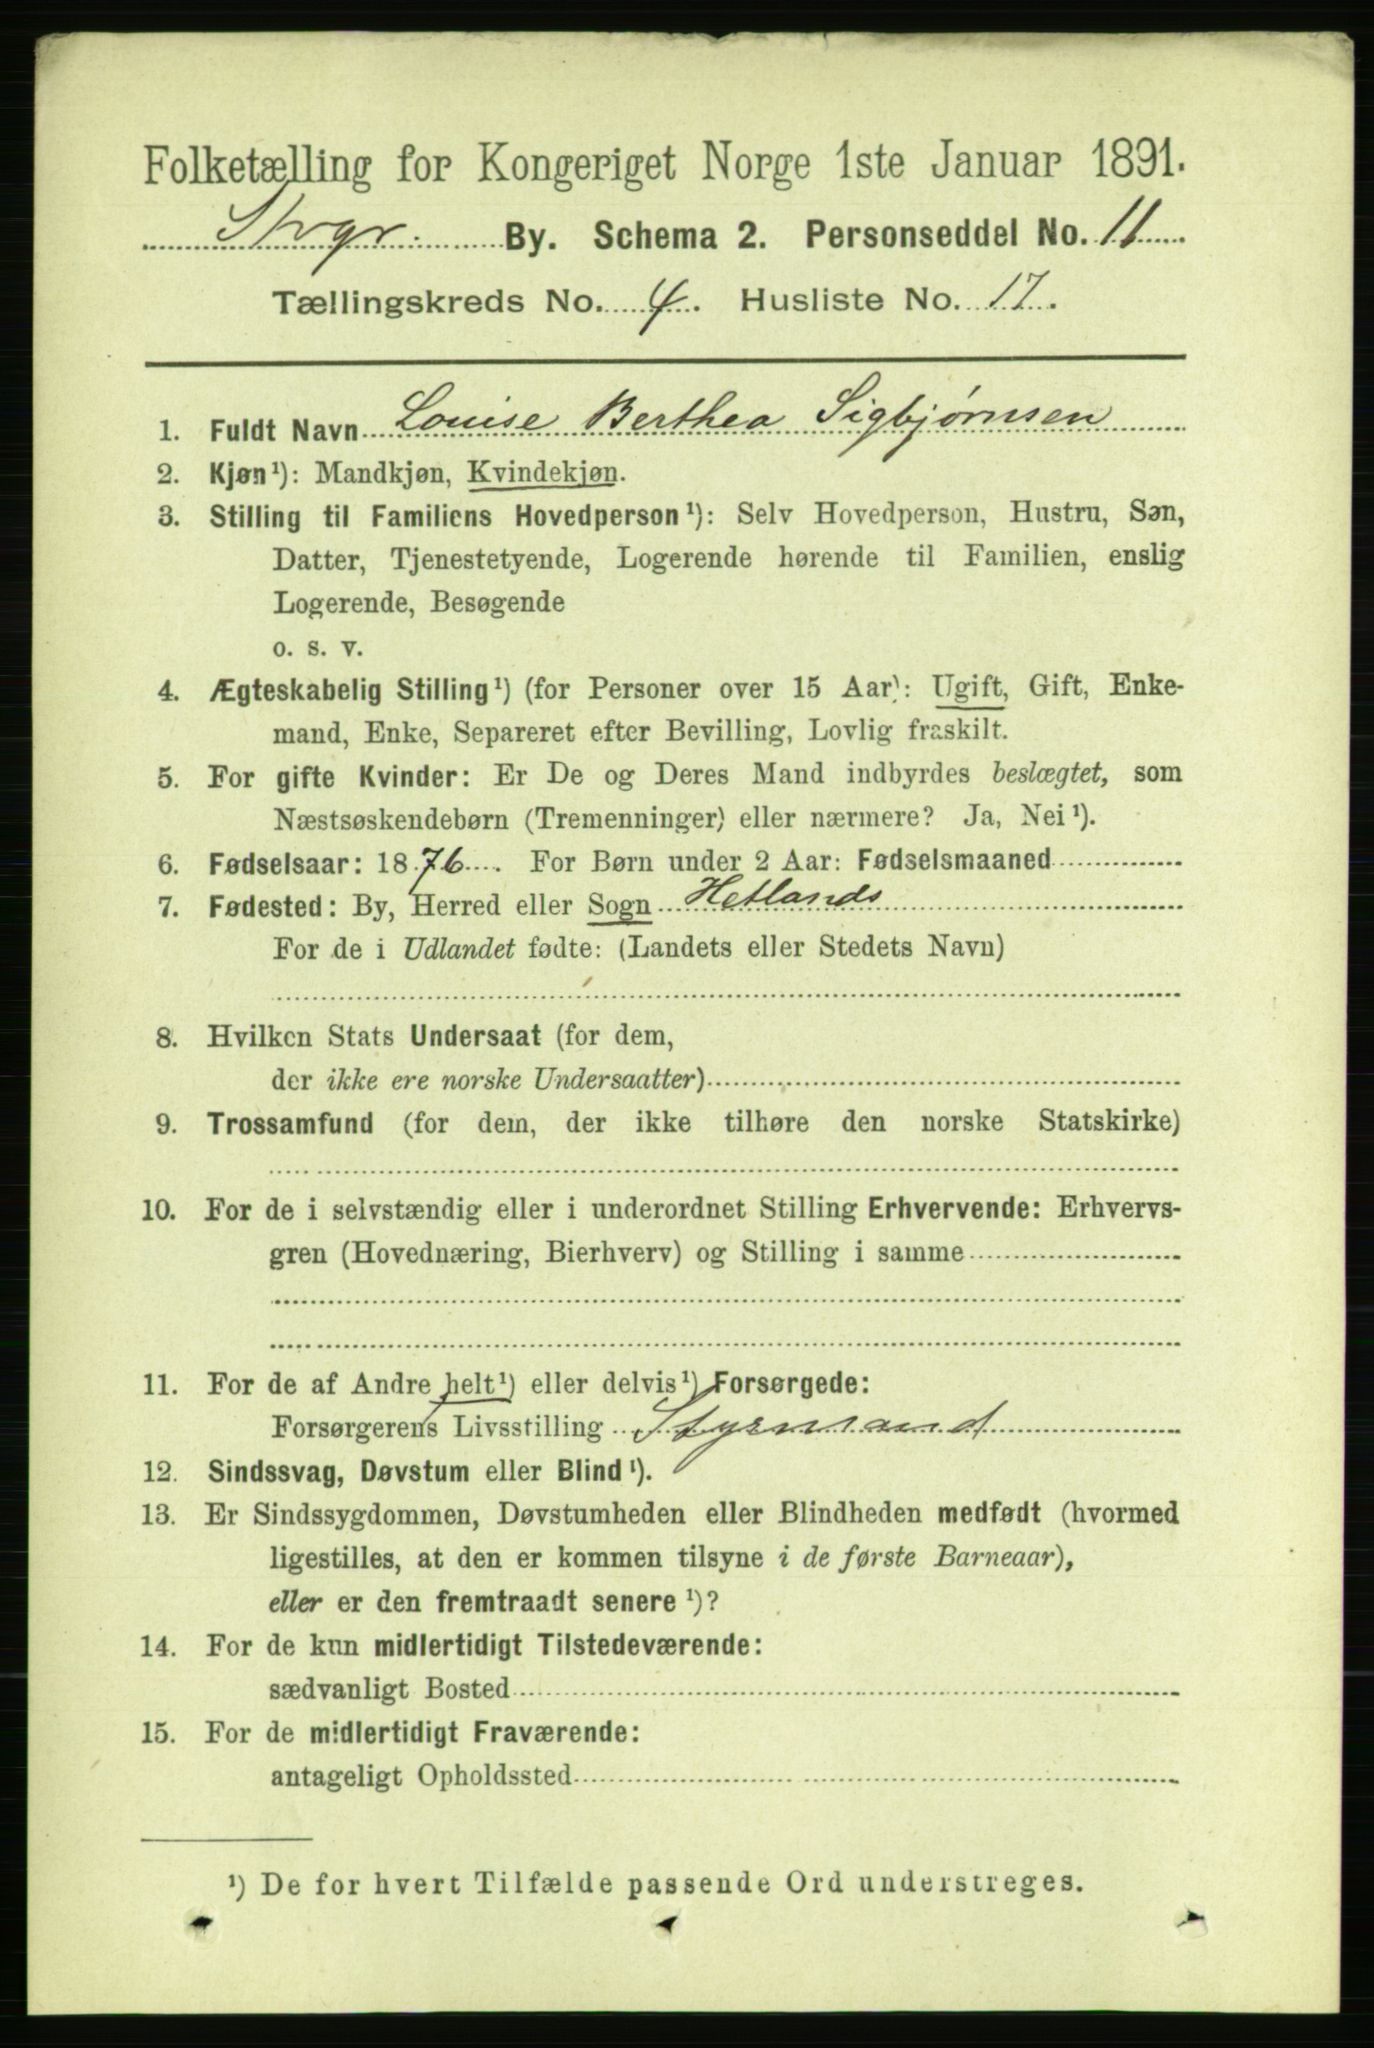 Folketælling for Kongeriget Norge 1ste Januar 1891.
Svgr. By. Schema 2. Personseddel No. 11
Tællingskreds No. 4. Husliste No. 17.
1. Fuldt Navn Louise Berthea Sigbjørnsen
2. Kjøn¹): Mandkjøn, Kvindekjøn.
3. Stilling til Familiens Hovedperson¹): Selv Hovedperson, Hustru, Søn,
Datter, Tjenestetyende, Logerende hørende til Familien, enslig
Logerende, Besøgende
o. s. v.
4. Ægteskabelig Stilling¹) (for Personer over 15 Aar): Ugift, Gift, Enke-
mand, Enke, Separeret efter Bevilling, Lovlig fraskilt.
5. For gifte Kvinder: Er De og Deres Mand indbyrdes beslægtet, som
Næstsøskendebørn (Tremenninger) eller nærmere? Ja, Nei¹).
6. Fødselsaar: 1876. For Børn under 2 Aar: Fødselsmaaned
7. Fødested: By, Herred eller Sogn Hetlands
For de i Udlandet fødte: (Landets eller Stedets Navn)
8. Hvilken Stats Undersaat (for dem,
der ikke ere norske Undersaatter)
9. Trossamfund (for dem, der ikke tilhøre den norske Statskirke)
10. For de i selvstændig eller i underordnet Stilling Erhvervende: Erhvervs-
gren (Hovednæring, Bierhverv) og Stilling i samme
11. For de af Andre helt¹) eller delvis¹) Forsørgede:
Forsørgerens Livsstilling Styrmand
12. Sindssvag, Døvstum eller Blind¹).
13. Er Sindssygdommen, Døvstumheden eller Blindheden medfødt (hvormed
ligestilles, at den er kommen tilsyne i de første Barneaar),
eller er den fremtraadt senere¹)?
14. For de kun midlertidigt Tilstedeværende:
sædvanligt Bosted
15. For de midlertidigt Fraværende:
antageligt Opholdssted
¹) De for hvert Tilfælde passende Ord understreges.